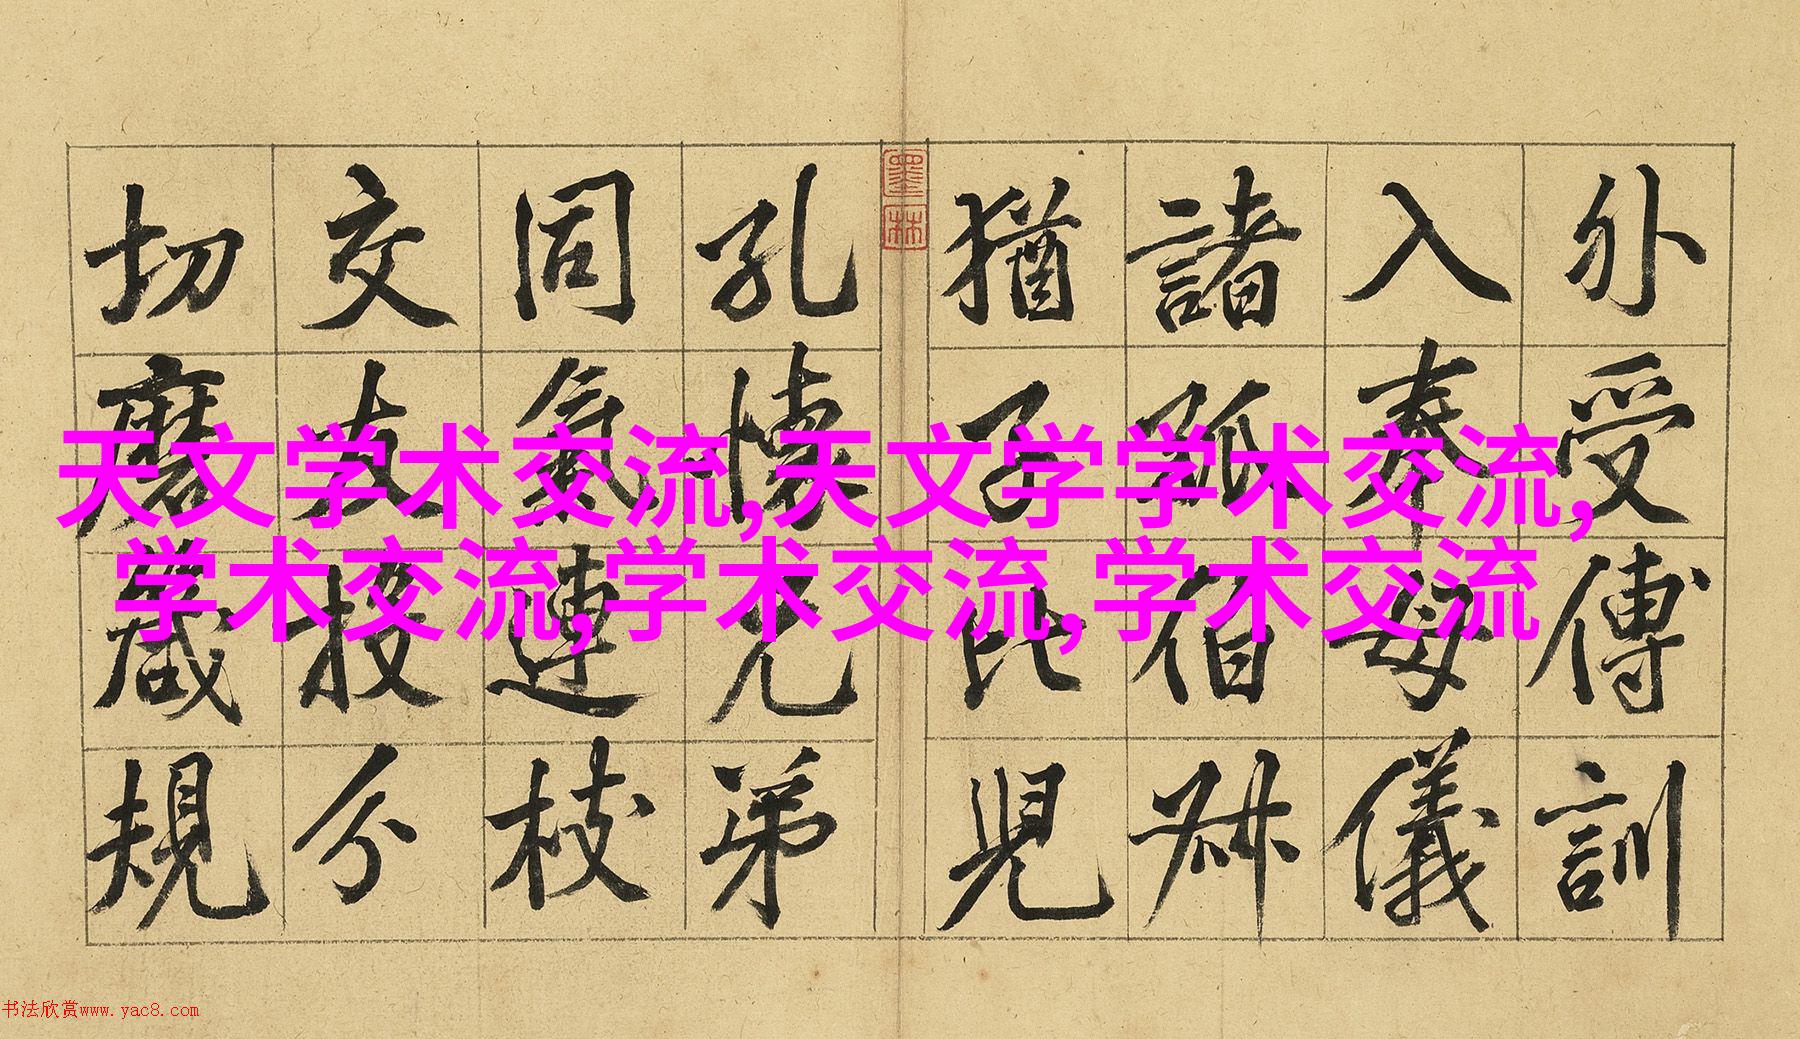 外受傅訓
入奉母儀
諸孤伯叔
猶子比兒
孔懷兄弟
同氣連枝
交友投分
切磨箴規
墨林
天文学术交流,天文学学术交流,
学术交流,学术交流,学术交流
书法欣赏www.yac8.com